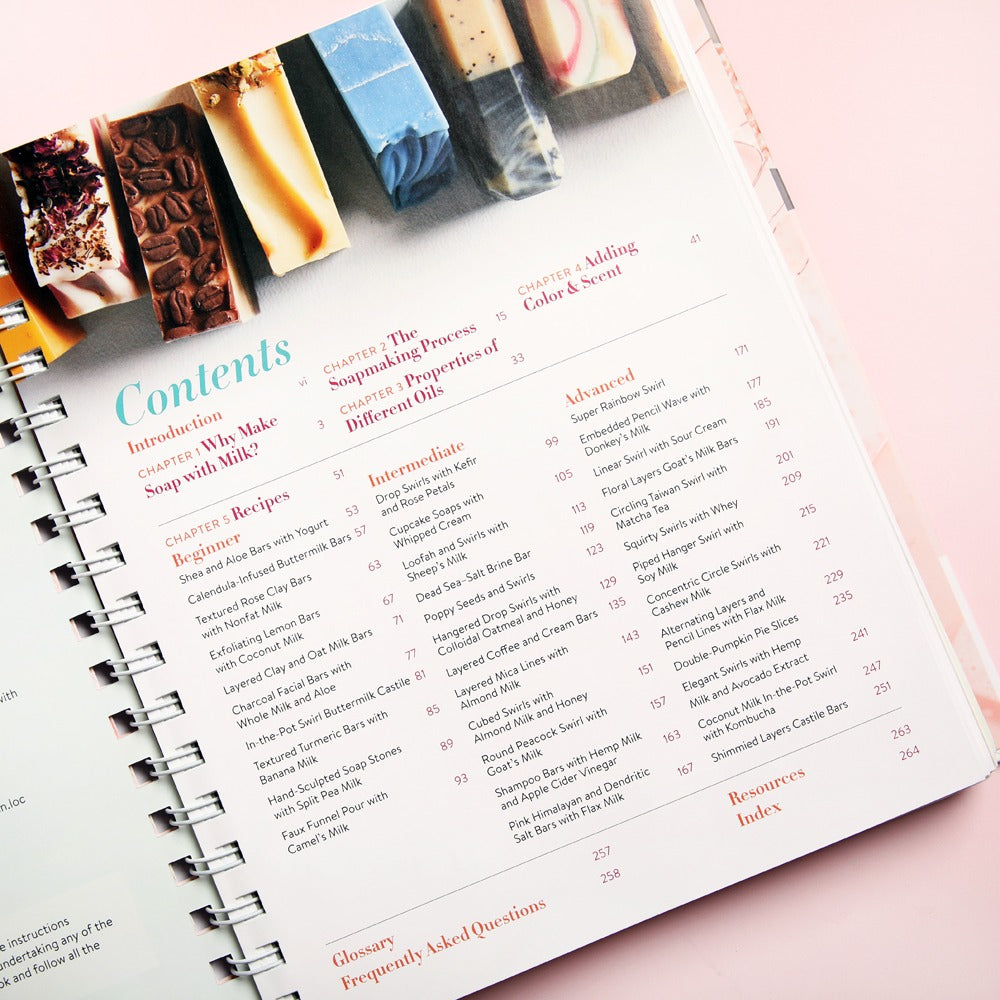 with
n.loc
e instructions
undertaking any of the
ok and follow all the
Contents
Introduction vi
CHAPTER 1 Why Make
Soap with Milk? 3
CHAPTER 2 The
Soapmaking Process 15
CHAPTER 3 Properties of
Different Oils 33
CHAPTER 4 Adding
Color & Scent 41
CHAPTER 5 Recipes 51
Beginner
Shea and Aloe Bars with Yogurt 53
Calendula-Infused Buttermilk Bars 57
Textured Rose Clay Bars
with Nonfat Milk 63
Exfoliating Lemon Bars
with Coconut Milk 67
Layered Clay and Oat Milk Bars 71
Charcoal Facial Bars with
Whole Milk and Aloe 77
In-the-Pot Swirl Buttermilk Castile 81
Textured Turmeric Bars with
Banana Milk 85
Hand-Sculpted Soap Stones
with Split Pea Milk 89
Faux Funnel Pour with
Camel's Milk 93
Intermediate
Drop Swirls with Kefir
and Rose Petals 99
Cupcake Soaps with
Whipped Cream 105
Loofah and Swirls with
Sheep's Milk 113
Dead Sea-Salt Brine Bar 119
Poppy Seeds and Swirls 123
Hangered Drop Swirls with
Colloidal Oatmeal and Honey 129
Layered Coffee and Cream Bars 135
Layered Mica Lines with
Almond Milk 143
Cubed Swirls with
Almond Milk and Honey 151
Round Peacock Swirl with
Goat's Milk 157
Shampoo Bars with Hemp Milk
and Apple Cider Vinegar 163
Pink Himalayan and Dendritic
Salt Bars with Flax Milk 167
Advanced
Super Rainbow Swirl 171
Embedded Pencil Wave with
Donkey's Milk 177
Linear Swirl with Sour Cream 185
Floral Layers Goat's Milk Bars 191
Circling Taiwan Swirl with
Matcha Tea 201
Squirty Swirls with Whey 209
Piped Hanger Swirl with
Soy Milk 215
Concentric Circle Swirls with
Cashew Milk 221
Alternating Layers and
Pencil Lines with Flax Milk 229
Double-Pumpkin Pie Slices 235
Elegant Swirls with Hemp
Milk and Avocado Extract 241
Coconut Milk In-the-Pot Swirl
with Kombucha 247
Shimmied Layers Castile Bars 251
Glossary 257
Frequently Asked Questions 258
Resources 263
Index 264